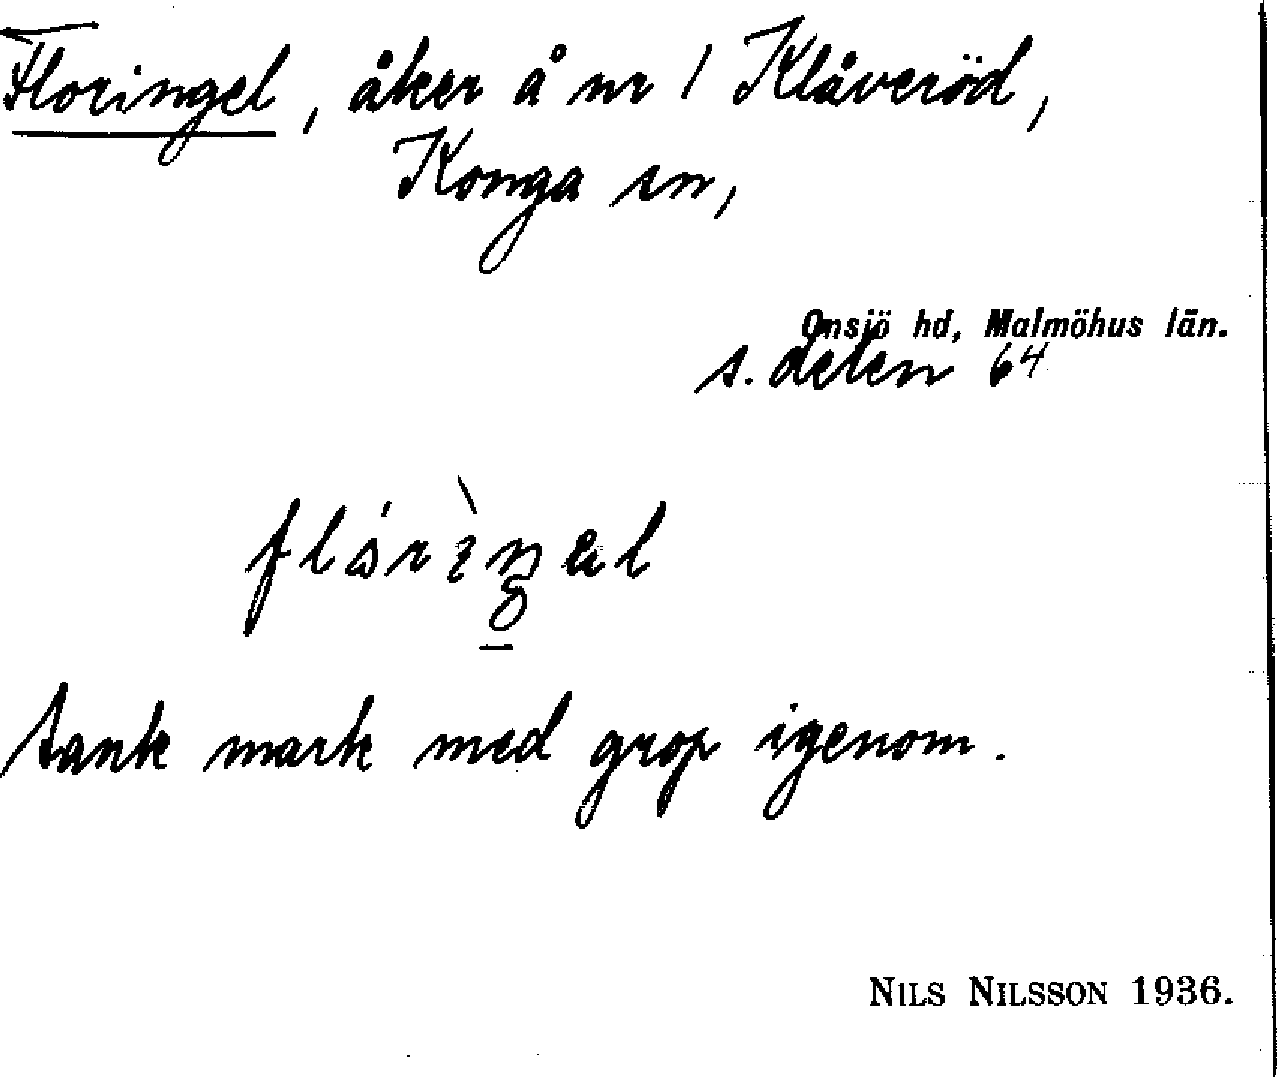 Floringel, åker å nr 1 Klåveröd,
Konga sn,
Onsjö hd, Malmöhus län.
s. delen 64
tank mark med grop igenom.
NILS NILSSON 1936.